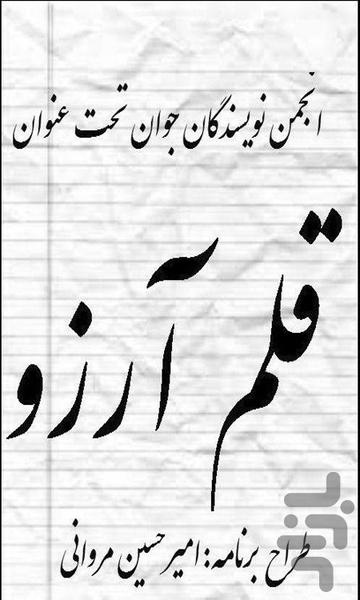 انجمن نویسندگان جوان تحت عنوان
قلم آرزو
طراح برنامه: امیرحسین مروانی
بازار